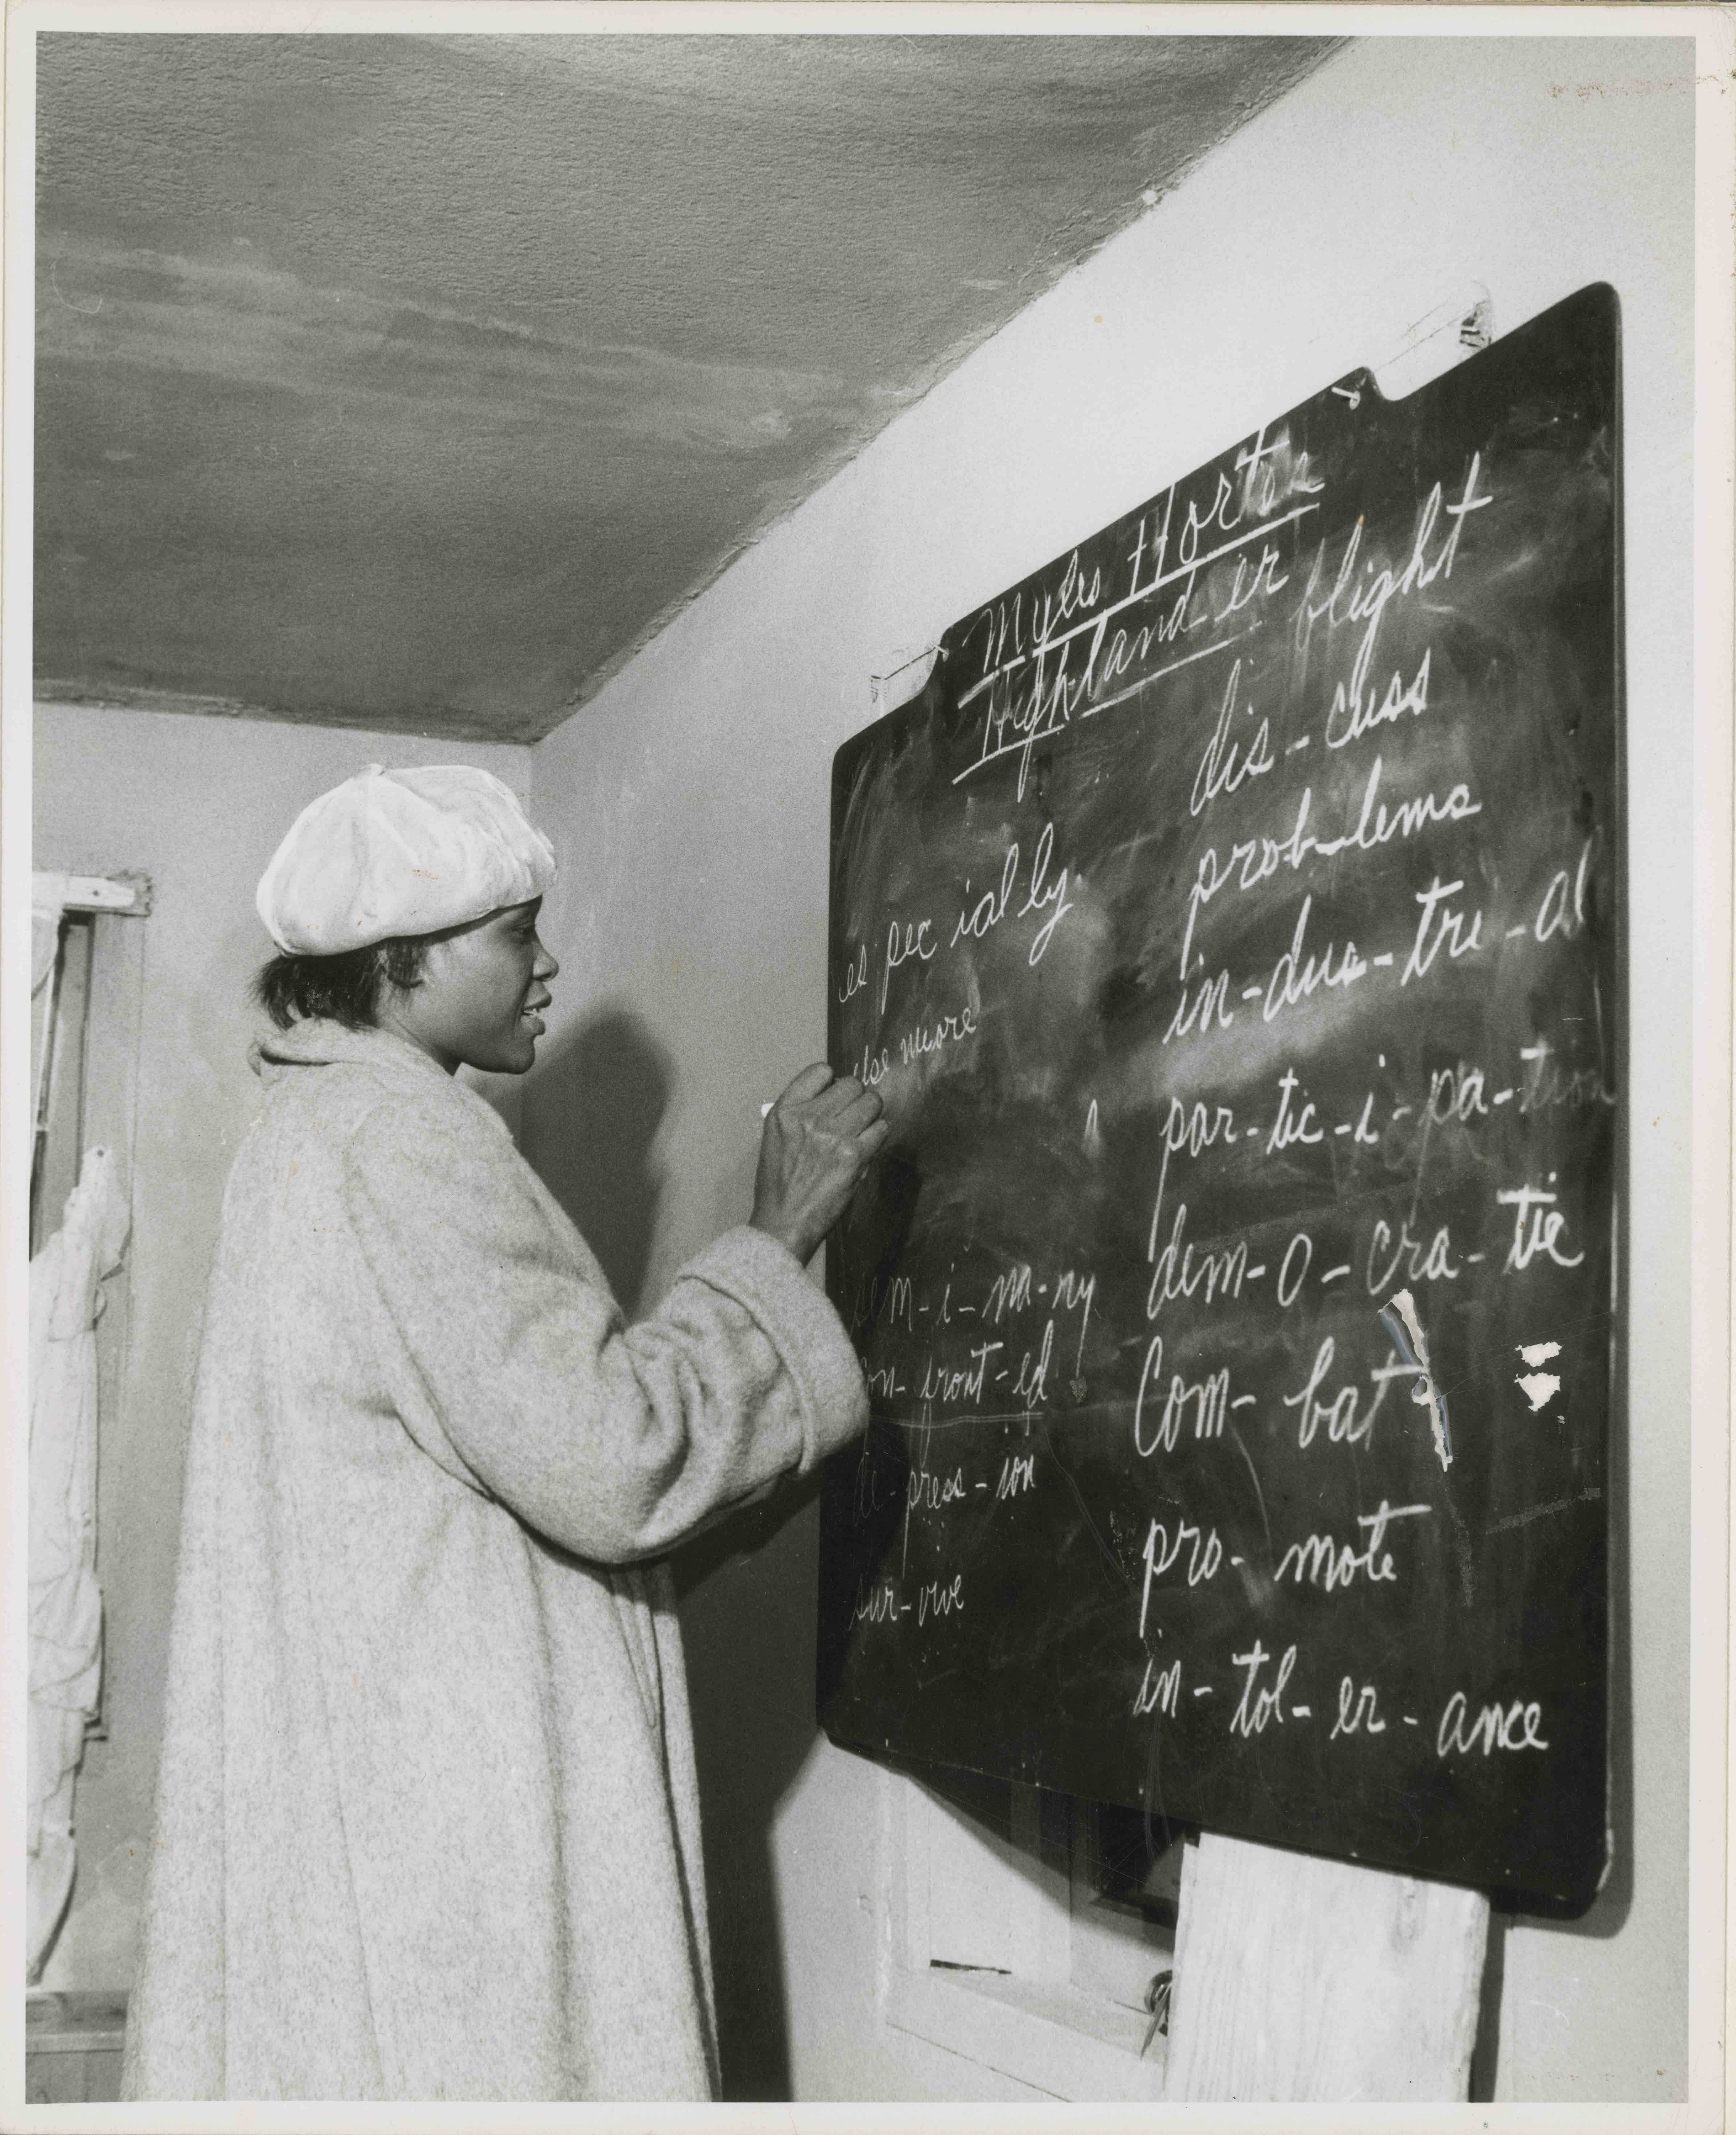 Myles Horton
High-land-er
blight
dis-cuss
prob-lems
in-dus-tri-al
par-tic-i-pa-tion
dem-o-cra-tic
Com-bat
pro-mote
in-tol-er-ance
es pec ial ly
more
sem-i-na-ry
con-front-ed
de-press-ion
sur-vive